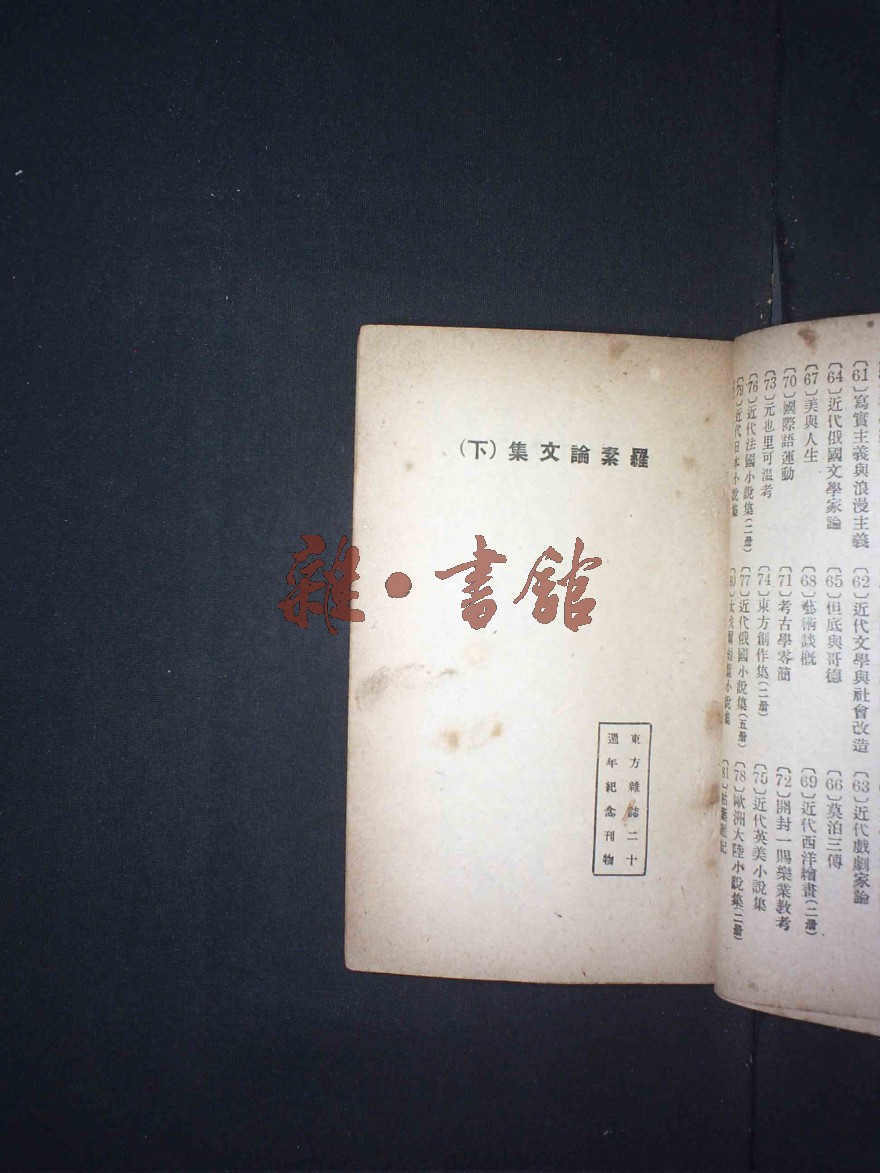 羅素論文集(下)
東方雜誌二十
週年紀念刊物
雜·書館
〔61〕寫實主義與浪漫主義 〔62〕近代文學與社會改造 〔63〕近代戲劇家論
〔64〕近代俄國文學家論 〔65〕但底與哥德 〔66〕莫泊三傳
〔67〕美與人生 〔68〕藝術談概 〔69〕近代西洋繪畫(二册)
〔70〕國際語運動 〔71〕考古學零簡 〔72〕開封一賜樂業教考
〔73〕元也里可溫考 〔74〕東方創作集(二册) 〔75〕近代英美小說集
〔76〕近代法國小說集(二册) 〔77〕近代俄國小說集(五册) 〔78〕歐洲大陸小說集(二册)
〔79〕近代日本小說集